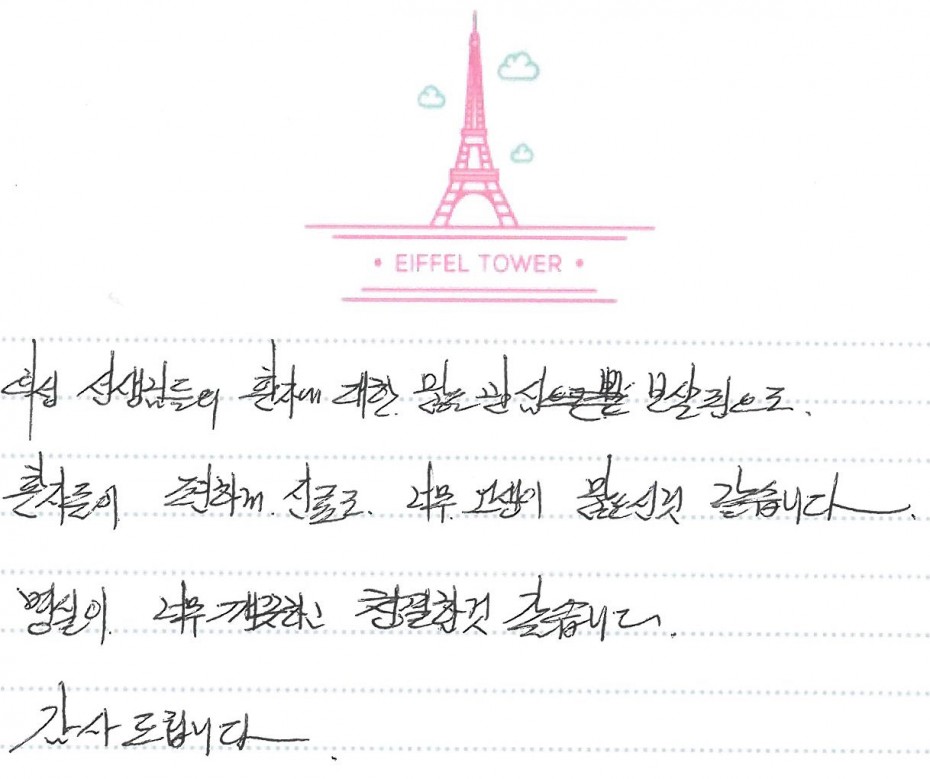 • EIFFEL TOWER •
선생님들의 환자에 대한 많은 관심 보살핌으로.
환자들이 편하게. 진료로. 너무. 고생이 많으신것 같습니다.
병실이. 너무 깨끗하고 청결한것 같습니다.
감사드립니다.